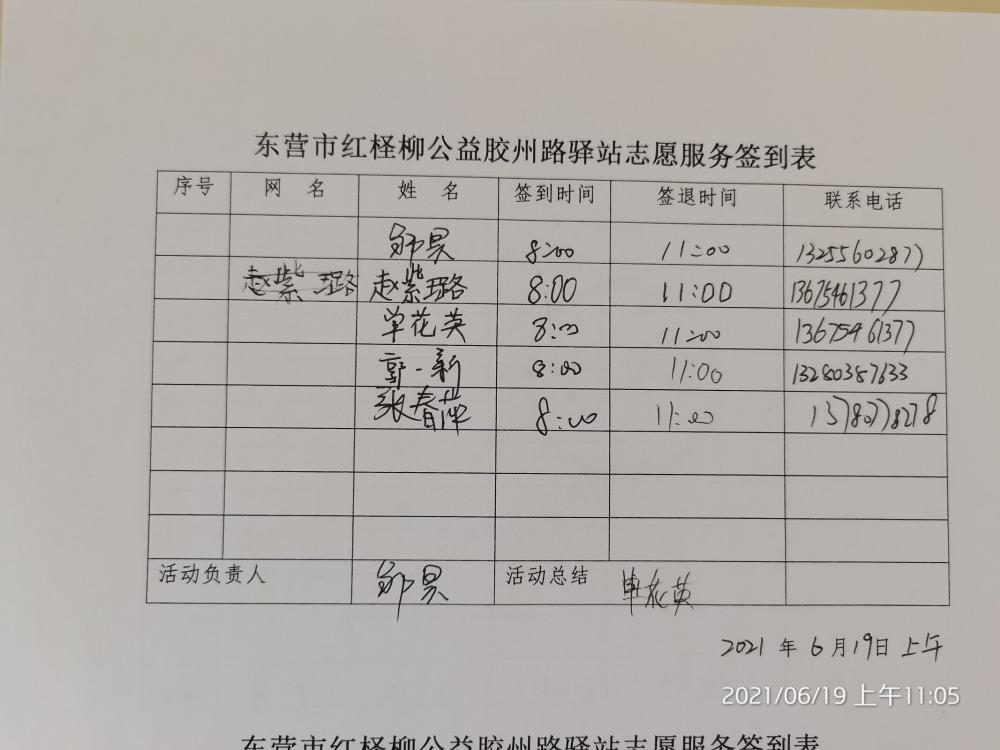 东营市红柽柳公益胶州路驿站志愿服务签到表
序号 网 名 姓 名 签到时间 签退时间 联系电话
邹昊 8:00 11:00 13255602877
赵紫璐 赵紫璐 8:00 11:00 13675461377
单花英 8:00 11:00 13675461377
郭一新 8:00 11:00 13280387633
张春萍 8:00 11:00 13780778278
活动负责人 邹昊 活动总结 单花英
2021 年 6 月 19 日 上午
2021/06/19 上午11:05
东营市红柽柳公益胶州路驿站志愿服务签到表